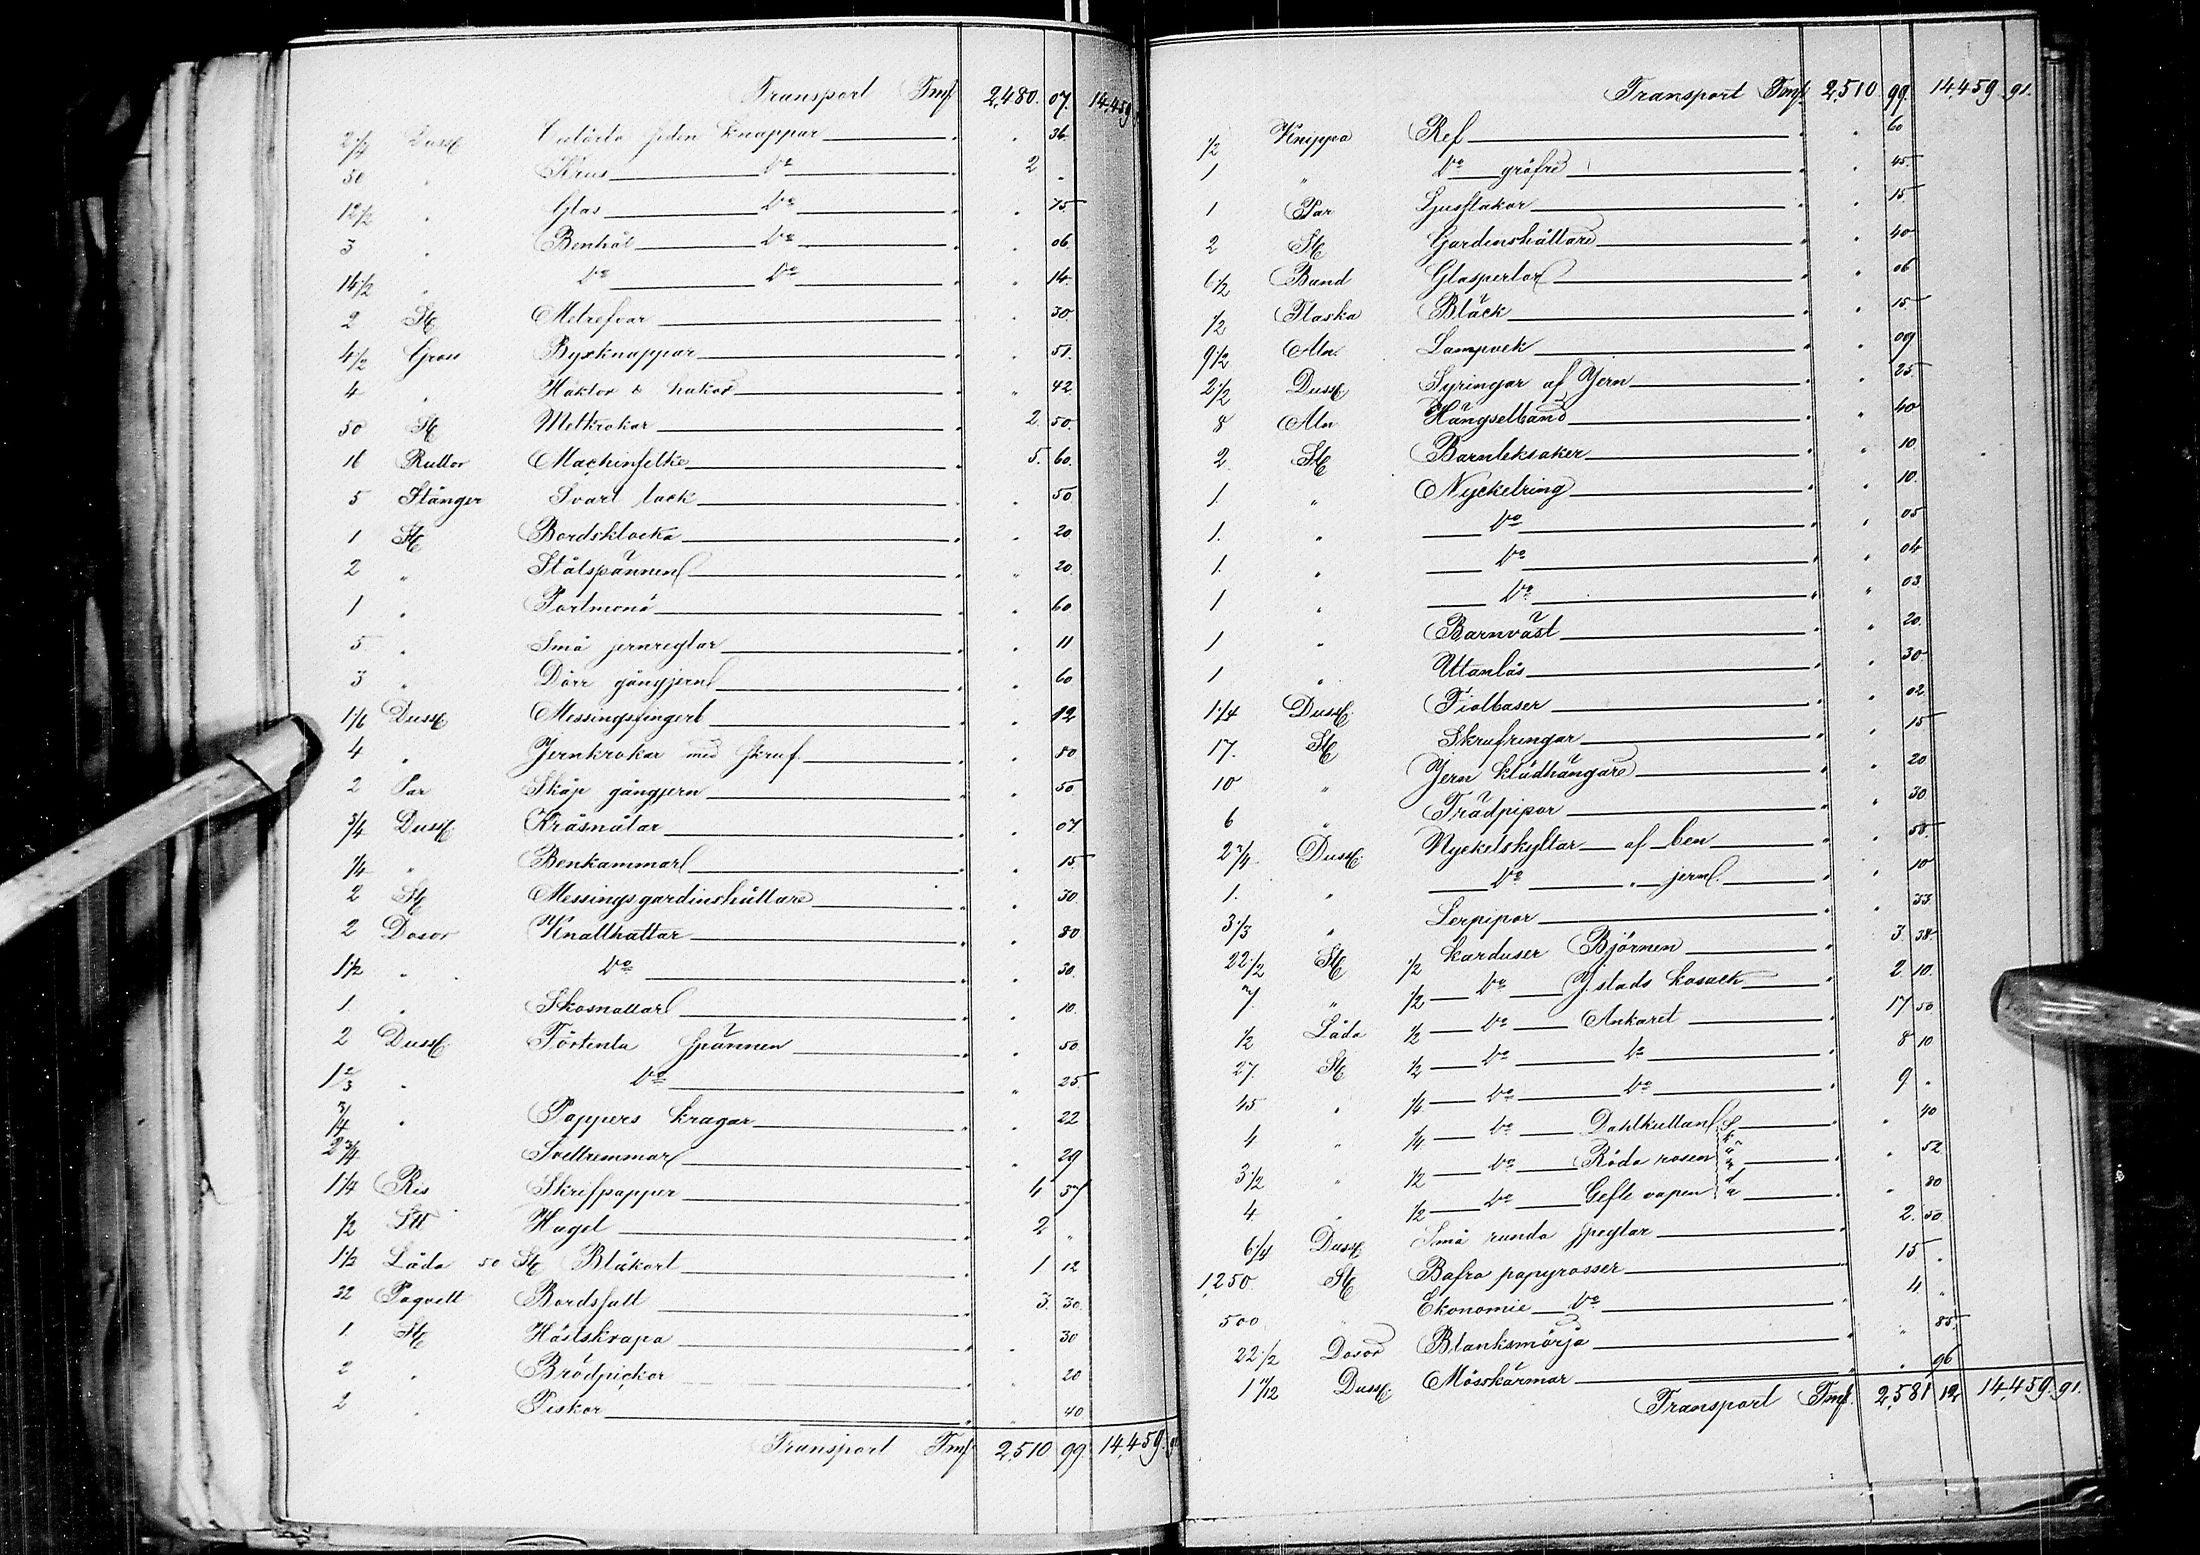 Transport Fmk 2,480. 07. 14,459
2 1/4 Duss. jden Knappar " 36.
50 " Krus Do 2 "
12 1/2 " Glas Do " 75
3 " Benhål Do " 06.
14 1/2 " Do Do " 14.
2 St. Metrefvar " 30.
4 1/2 Gross Byxknappar " 51.
4 " Häktor & hakar " 42.
50 St. Metkrokar 2. 50.
16 Rullor Machinsilke 5. 60.
5 Stänger Svart lack " 50.
1 St. Bordsklocka " 20
2 " Stålspännen " 20.
1 " Portmonä " 60
5 " Små jernreglar " 11
3 " Dörr gångjern " 60
1 1/6 Duss. Messingsfingerb " 12
4 " Jernkrokar med skruf. " 80
2 Par Skåp gångjern " 50
3/4 Duss. Kråsnålar " 07
1/4 " Benkammar " 15
2 St. Messingsgardinshållare " 30.
2 Dosor Knallhattar " 80
1 1/2 " Do " 30.
1. " Skosnallar " 10.
2 Duss. Förtenta spännen " 50
1 2/3 " Do " 25
3/4 " Pappers kragar " 22
2 3/4 " Svettremmar " 29
1 1/4 Ris Skrifpapper 4 37
1/2 Hagel 2 "
1 1/2 Låda 50 St. Blåkort 1 12
22 Paquett Bordssalt 3. 30.
1. St. Hästskrapa " 30
2 " Brödpickor " 20
2 " Piskor " 40
Transport Fmk 2,510 99. 14,459. 91
Transport Fmk 2,510. 99. 14,459. 91.
1/2 Knippa Ref " 60
1 " Do gröfre " 45.
1 Par Ljusstakar " 15
2 St. Gardinshållare " 40
6 1/2 Band Glasperlor " 06
1/2 Flaska Bläck " 15
9 1/2 Aln. Lampvek " 09
2 1/2 Duss. Syringar af Jern " 25.
8 Aln Hängselband " 40
2 St. Barnleksaker " 10.
1 " Nyckelring " 10.
1. " Do " 05
1. " Do " 04
1 " Do " 03
1 " Barnväst " 20.
1 " Utanlås " 30.
1 1/4 Duss. Fiolbaser " 02
17. St. Skrufringar " 15
10 " Jern klädhängare " 20
6 " Trädpipor " 30
2 3/4 Duss. Nyckelskyltar af ben " 55.
1. " Do " jern. " 10
3 1/3 " Lerpipor " 33.
22 1/2 St. 1/2 Karduser Björnen 3. 38
7. " 1/2 Do Ystads kosack 2. 10.
1/2 Låda 1/2 Do Ankaret 17 50
27. St. 1/2 Do Do 8 10
45 " 1/4 Do Do 9 "
4 " 1/4 Do Dahlkullan " 40
3 1/2 " 1/2 Do Röda rosen " 52
4 " 1/2 Do Gefle vapen " 80
6 1/4 Duss. Små runda speglar 2. 50
1,250 St. Bafra papyrosser 15 "
500 " Ekonomie Do 4 "
22 1/2 Dosor Blanksmörja " 85.
1 11/12 Duss. Mösskärmar " 96
Transport Fmk. 2,581 12 14,459. 91.